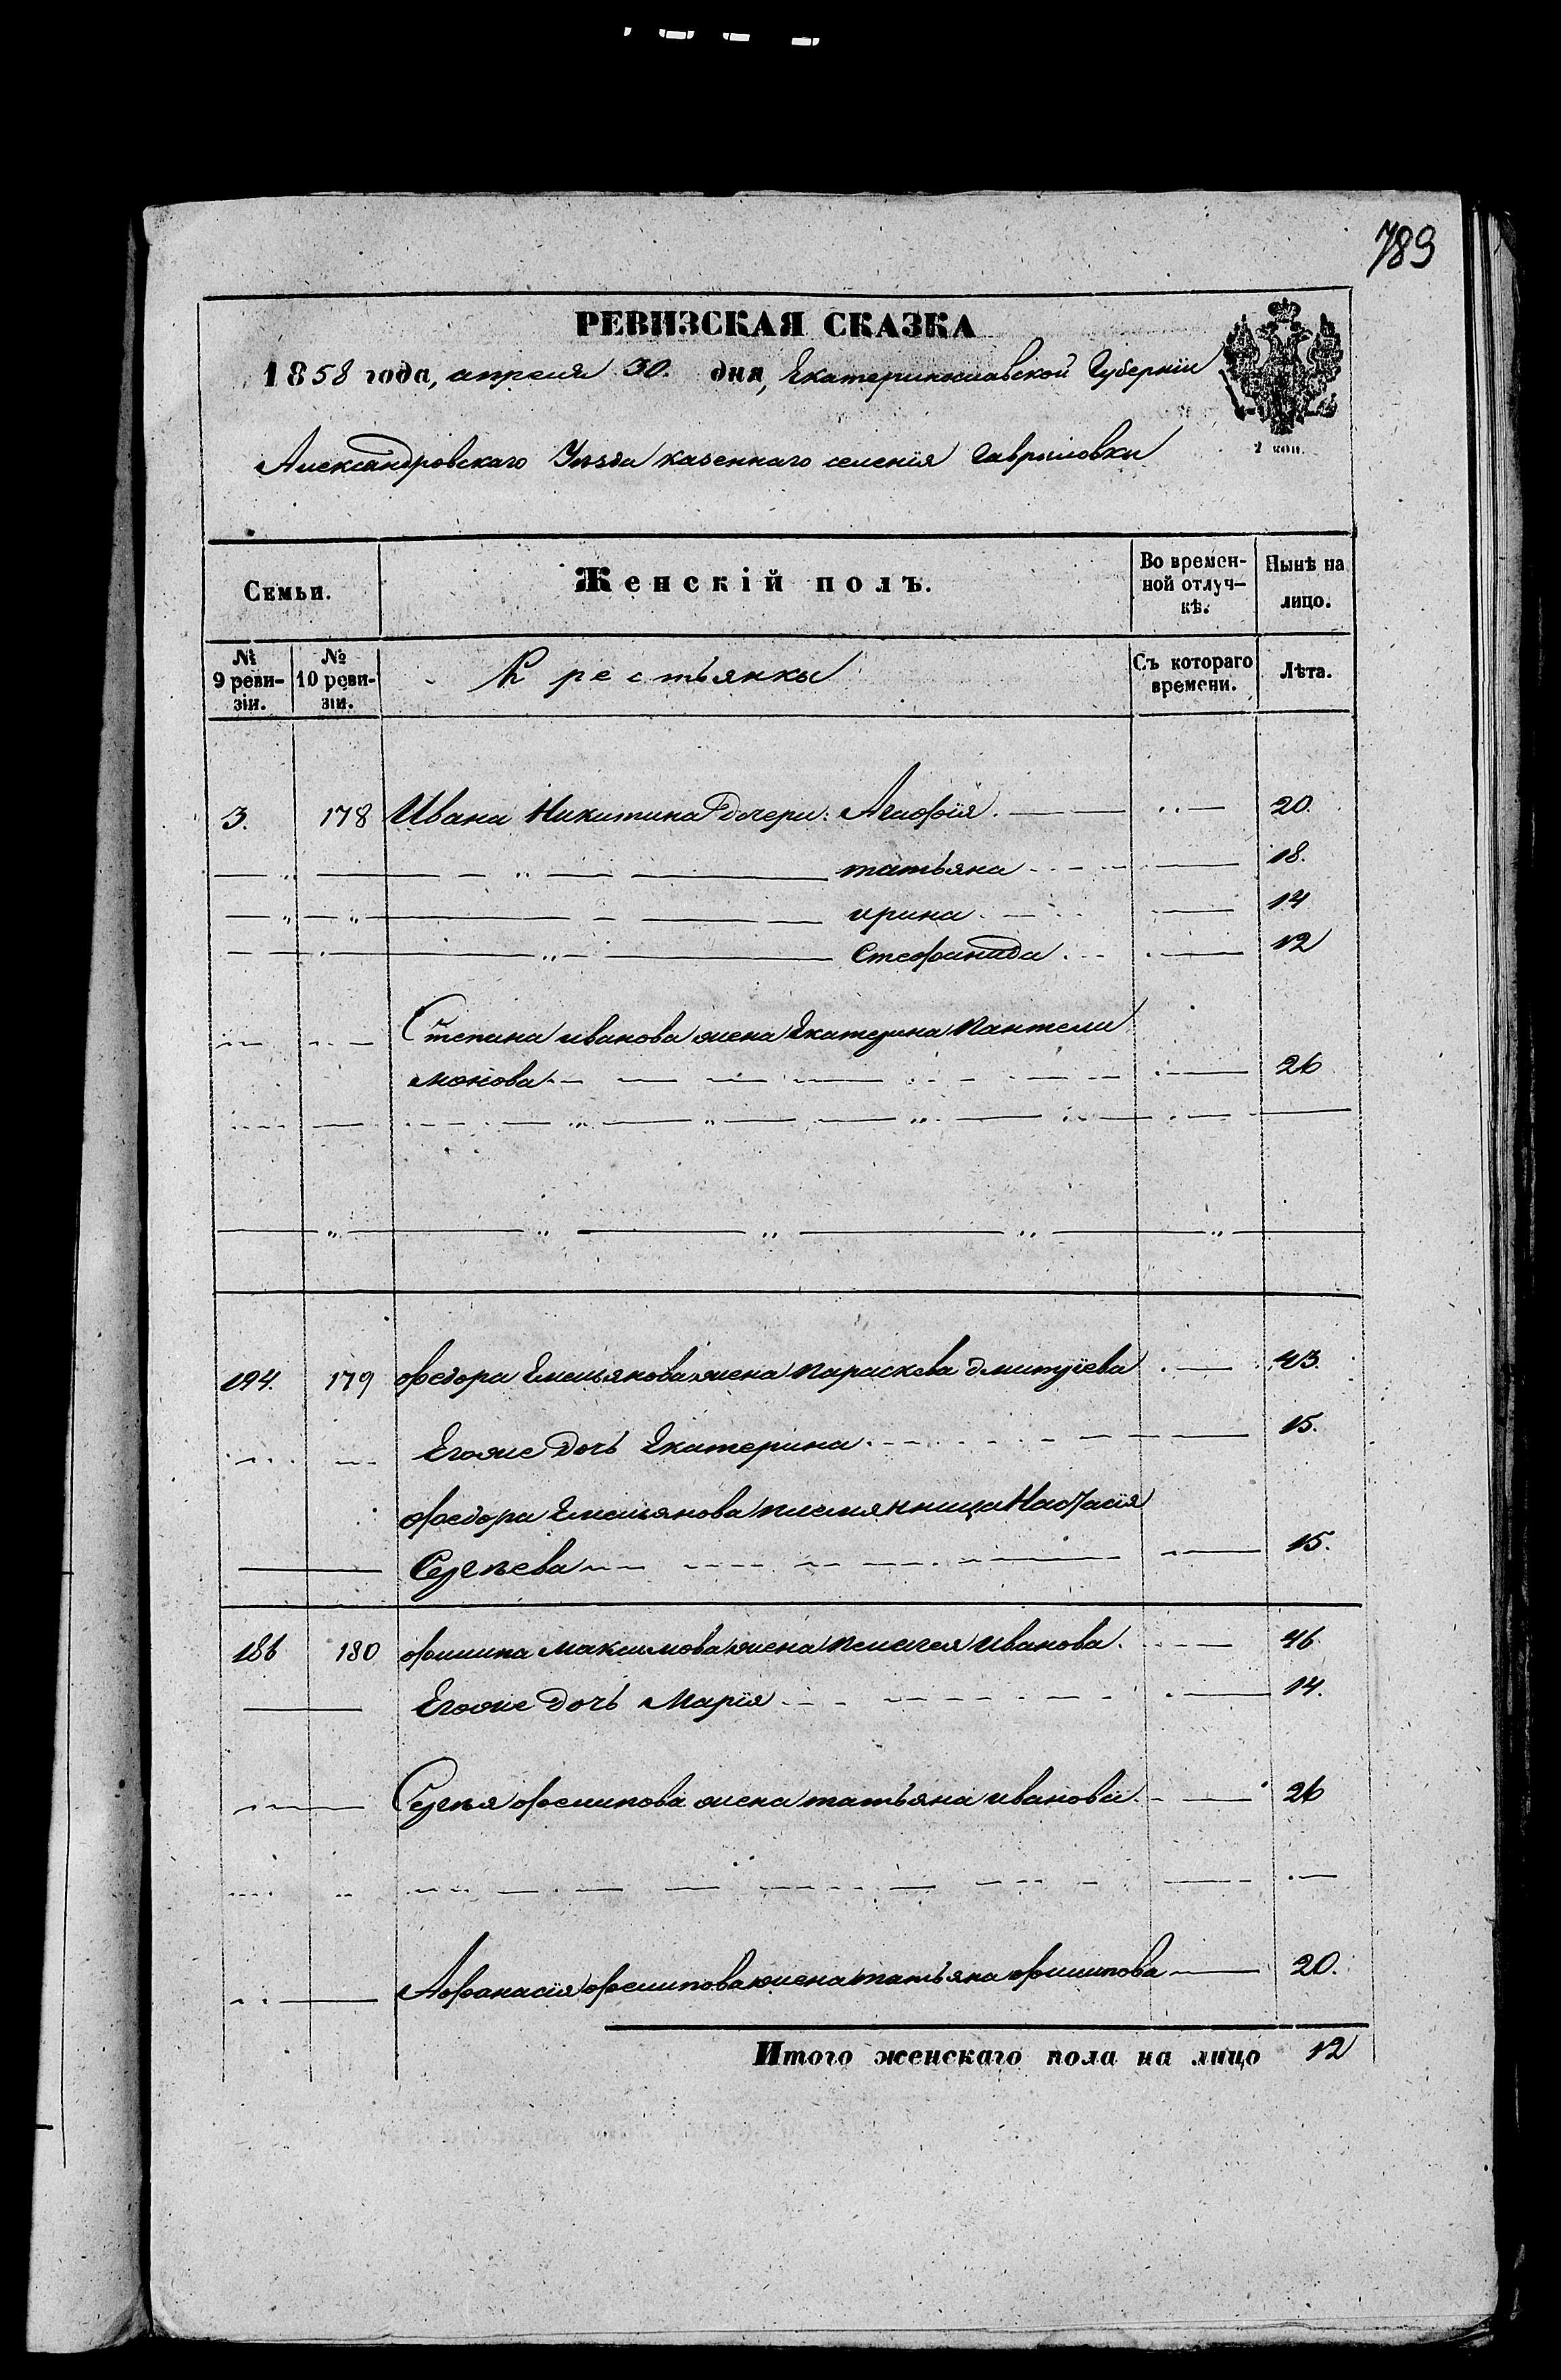 789
РЕВИЗСКАЯ СКАЗКА
1858 года, апреля 30. дня, Екатеринославской Губернiи
Александровскаго Уѣзда казеннаго селенiя Гавриловки
2 коп.
Семьи. Женскiй полъ. Во времен-ной отлуч-кѣ. Нынѣ на лицо.
№ 9 реви-зiи. № 10 реви-зiи. Крестьянки Съ котораго времени. Лѣта.
3. 178 Ивана Никитина дочери: Агафiя. 20.
татьяна 18.
ирина 14
Стефанида 12
Степана иванова жена Екатерина Пантели
монова 26
194. 179 федора Емельянова жена Параскева дмитрiева 43.
Егоже дочь Екатерина 15.
федора Емельянова племянница Настасiя
Сергѣева 15.
186 180 филипа максимова жена пелагея иванова 46
Егоже дочь Марiя 14.
Сергѣя фелипова жена татьяна иванова 26
Афанасiя фелипова жена татьяна филипова 20.
Итого женскаго пола на лицо 12